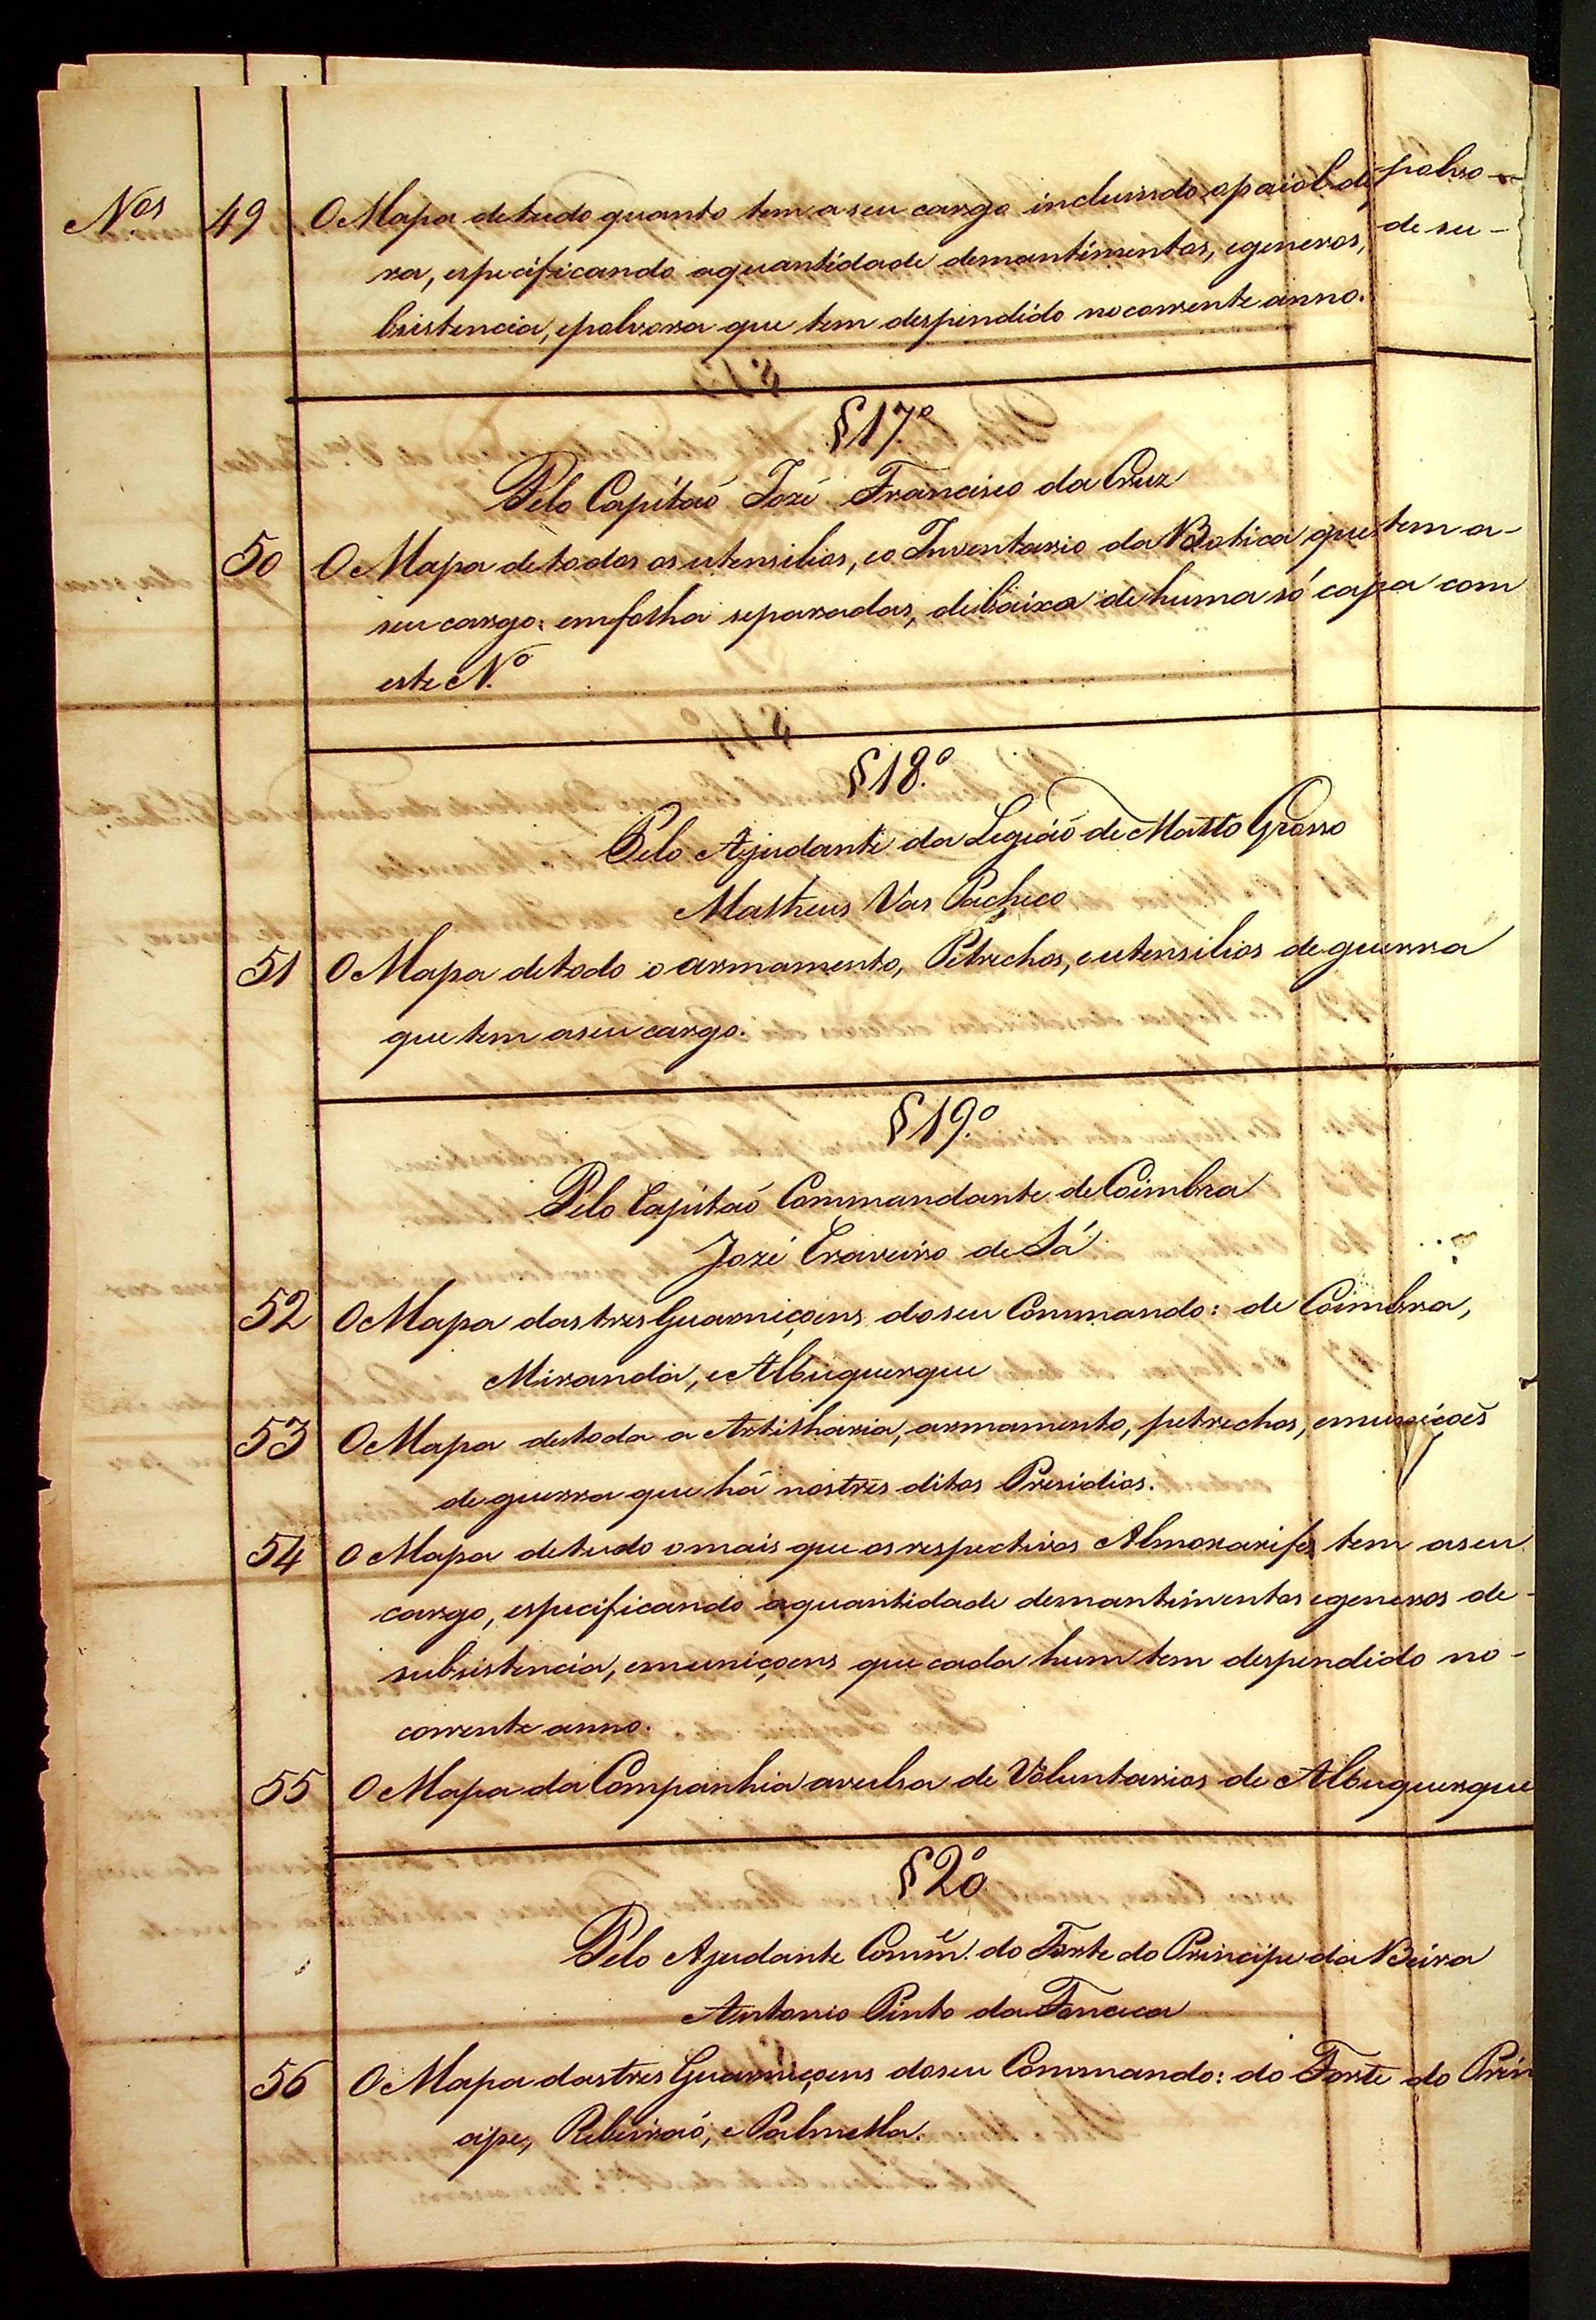 Nos 49 O Mapa detudo quanto tem a seu cargo incluindo opaiol de polvo-
ra, especificando aquantidade demantimentos, egeneros, de su-
bsistencia, epolvora que tem despendido nocorrente anno.
§ 17.º
Pelo Capitaõ Jozé Francisco da Cruz
50 O Mapa detodos os utensilios, eo Inventario da Botica, que tem a-
seu cargo: emfolha separadas, debaixa de huma só capa com
este N.º
§ 18.º
Pelo Ajudante da Legiaõ de Matto Grosso
Matheus Vas Pacheco
51 O Mapa detodo o armamento, Petrechos, eutensilios deguerra
que tem aseu cargo.
§ 19.º
Pelo Capitaõ Commandante de Coimbra
Jozé Craveiro de Sá
52 O Mapa dastres Guarniçoens doseu Commando: de Coimbra,
Miranda, e Albuquerque
53 O Mapa detoda a Artilharia, armamento, petrechos, emuniçoẽs
deguerra que há nostres ditos Presidios.
54 O Mapa detudo omais que os respectivos Almoxarifes tem aseu
cargo, especificando aquantidade demantimentos egeneros de-
subsistencia, emuniçoens que cada hum tem despendido no-
corrente anno.
55 O Mapa da Companhia avulsa de Voluntarios de Albuquerque
§ 20º
Pelo Ajudante Comm.e do Forte do Principe da Beira
Antonio Pinto da Fonceca
56 O Mapa dastres Guarniçoens doseu Commando: do Forte do Prin
cipe, Ribeiraõ, e Palmella.